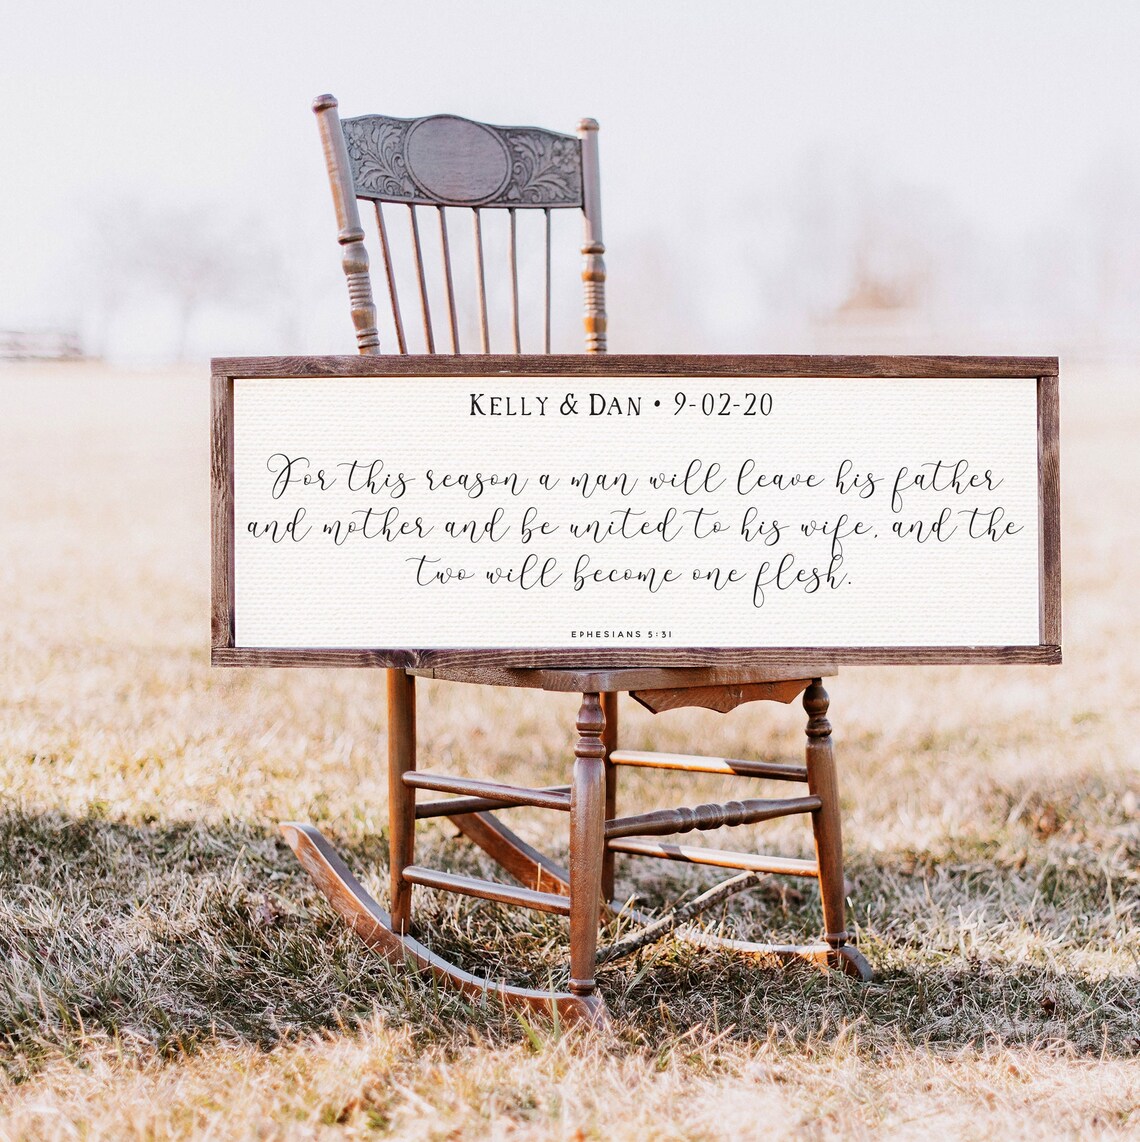 Kelly & Dan • 9-02-20
For this reason a man will leave his father
and mother and be united to his wife, and the
two will become one flesh.
EPHESIANS 5:31